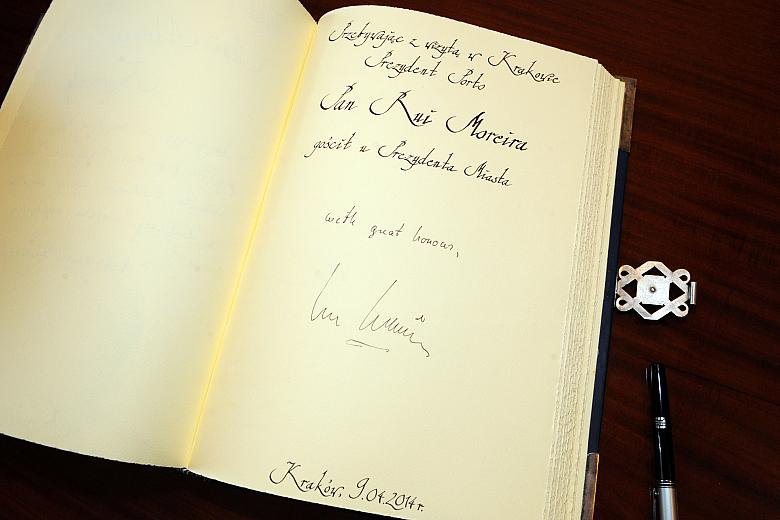 Przebywając z wizytą w Krakowie
Prezydent Porto
Pan Rui Moreira
gościł u Prezydenta Miasta
with great honour,
Kraków, 9.04.2014 r.